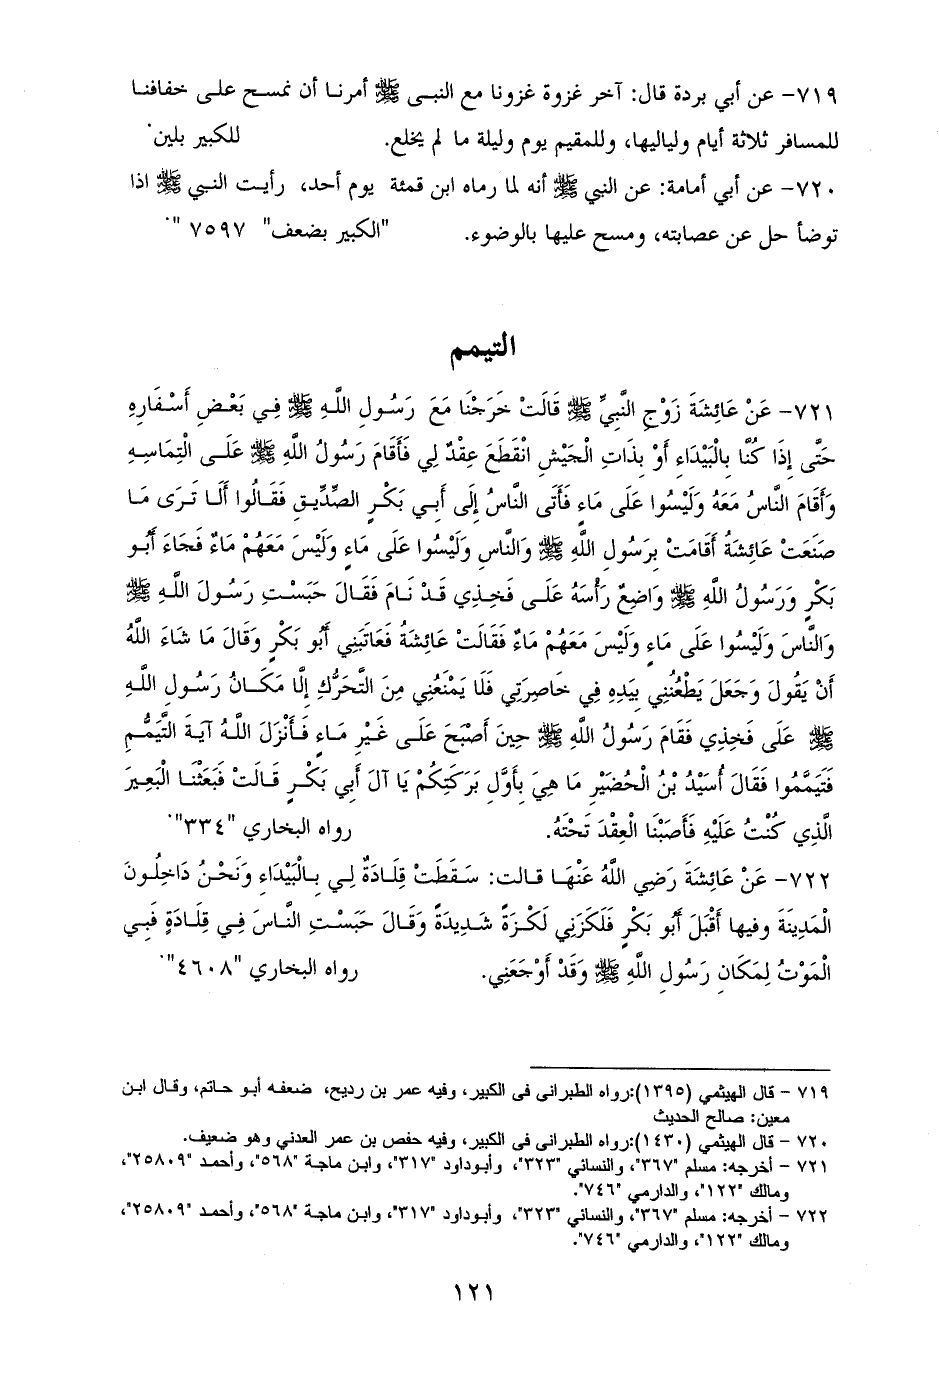 ٧١٩- عن أبي بردة قال: آخر غزوة غزونا مع النبي ﷺ أمرنا أن نمسح على خفافنا
للمسافر ثلاثة أيام ولياليها، وللمقيم يوم وليلة ما لم يخلع. للكبير بلين.
٧٢٠- عن أبي أمامة: عن النبي ﷺ أنه لما رماه ابن قمئة يوم أحد، رأيت النبي ﷺ اذا
توضأ حل عن عصابته، ومسح عليها بالوضوء. "الكبير بضعف" ٧٥٩٧ ".
التيمم
٧٢١- عَنْ عَائِشَةَ زَوْجِ النَّبِيِّ ﷺ قَالَتْ خَرَجْنَا مَعَ رَسُولِ اللَّهِ ﷺ فِي بَعْضِ أَسْفَارِهِ
حَتَّى إِذَا كُنَّا بِالْبَيْدَاءِ أَوْ بِذَاتِ الْجَيْشِ انْقَطَعَ عِقْدٌ لِي فَأَقَامَ رَسُولُ اللَّهِ ﷺ عَلَى الْتِمَاسِهِ
وَأَقَامَ النَّاسُ مَعَهُ وَلَيْسُوا عَلَى مَاءٍ فَأَتَى النَّاسُ إِلَى أَبِي بَكْرٍ الصِّدِّيقِ فَقَالُوا أَلَا تَرَى مَا
صَنَعَتْ عَائِشَةُ أَقَامَتْ بِرَسُولِ اللَّهِ ﷺ وَالنَّاسِ وَلَيْسُوا عَلَى مَاءٍ وَلَيْسَ مَعَهُمْ مَاءٌ فَجَاءَ أَبُو
بَكْرٍ وَرَسُولُ اللَّهِ ﷺ وَاضِعٌ رَأْسَهُ عَلَى فَخِذِي قَدْ نَامَ فَقَالَ حَبَسْتِ رَسُولَ اللَّهِ ﷺ
وَالنَّاسَ وَلَيْسُوا عَلَى مَاءٍ وَلَيْسَ مَعَهُمْ مَاءٌ فَقَالَتْ عَائِشَةُ فَعَاتَبَنِي أَبُو بَكْرٍ وَقَالَ مَا شَاءَ اللَّهُ
أَنْ يَقُولَ وَجَعَلَ يَطْعُنُنِي بِيَدِهِ فِي خَاصِرَتِي فَلَا يَمْنَعُنِي مِنَ التَّحَرُّكِ إِلَّا مَكَانُ رَسُولِ اللَّهِ
ﷺ عَلَى فَخِذِي فَقَامَ رَسُولُ اللَّهِ ﷺ حِينَ أَصْبَحَ عَلَى غَيْرِ مَاءٍ فَأَنْزَلَ اللَّهُ آيَةَ التَّيَمُّمِ
فَتَيَمَّمُوا فَقَالَ أُسَيْدُ بْنُ الْحُضَيْرِ مَا هِيَ بِأَوَّلِ بَرَكَتِكُمْ يَا آلَ أَبِي بَكْرٍ قَالَتْ فَبَعَثْنَا الْبَعِيرَ
الَّذِي كُنْتُ عَلَيْهِ فَأَصَبْنَا الْعِقْدَ تَحْتَهُ. رواه البخاري "٣٣٤".
٧٢٢- عَنْ عَائِشَةَ رَضِي اللَّهُ عَنْهَا قالت: سَقَطَتْ قِلَادَةٌ لِي بِالْبَيْدَاءِ وَنَحْنُ دَاخِلُونَ
الْمَدِينَةَ وفيها أَقْبَلَ أَبُو بَكْرٍ فَلَكَزَنِي لَكْزَةً شَدِيدَةً وَقَالَ حَبَسْتِ النَّاسَ فِي قِلَادَةٍ فَبِي
الْمَوْتُ لِمَكَانِ رَسُولِ اللَّهِ ﷺ وَقَدْ أَوْجَعَنِي. رواه البخاري "٤٦٠٨".
٧١٩ - قال الهيثمي (١٣٩٥):رواه الطبرانى فى الكبير، وفيه عمر بن رديح، ضعفه أبو حاتم، وقال ابن
معين: صالح الحديث
٧٢٠ - قال الهيثمي (١٤٣٠):رواه الطبرانى فى الكبير، وفيه حفص بن عمر العدني وهو ضعيف.
٧٢١ - أخرجه: مسلم "٣٦٧"، والنسائي "٣٢٣"، وأبوداود "٣١٧"، وابن ماجة "٥٦٨"، وأحمد "٢٥٨٠٩"،
ومالك "١٢٢"، والدارمي "٧٤٦".
٧٢٢ - أخرجه: مسلم "٣٦٧"، والنسائي "٣٢٣"، وأبوداود "٣١٧"، وابن ماجة "٥٦٨"، وأحمد "٢٥٨٠٩"،
ومالك "١٢٢"، والدارمي "٧٤٦".
١٢١